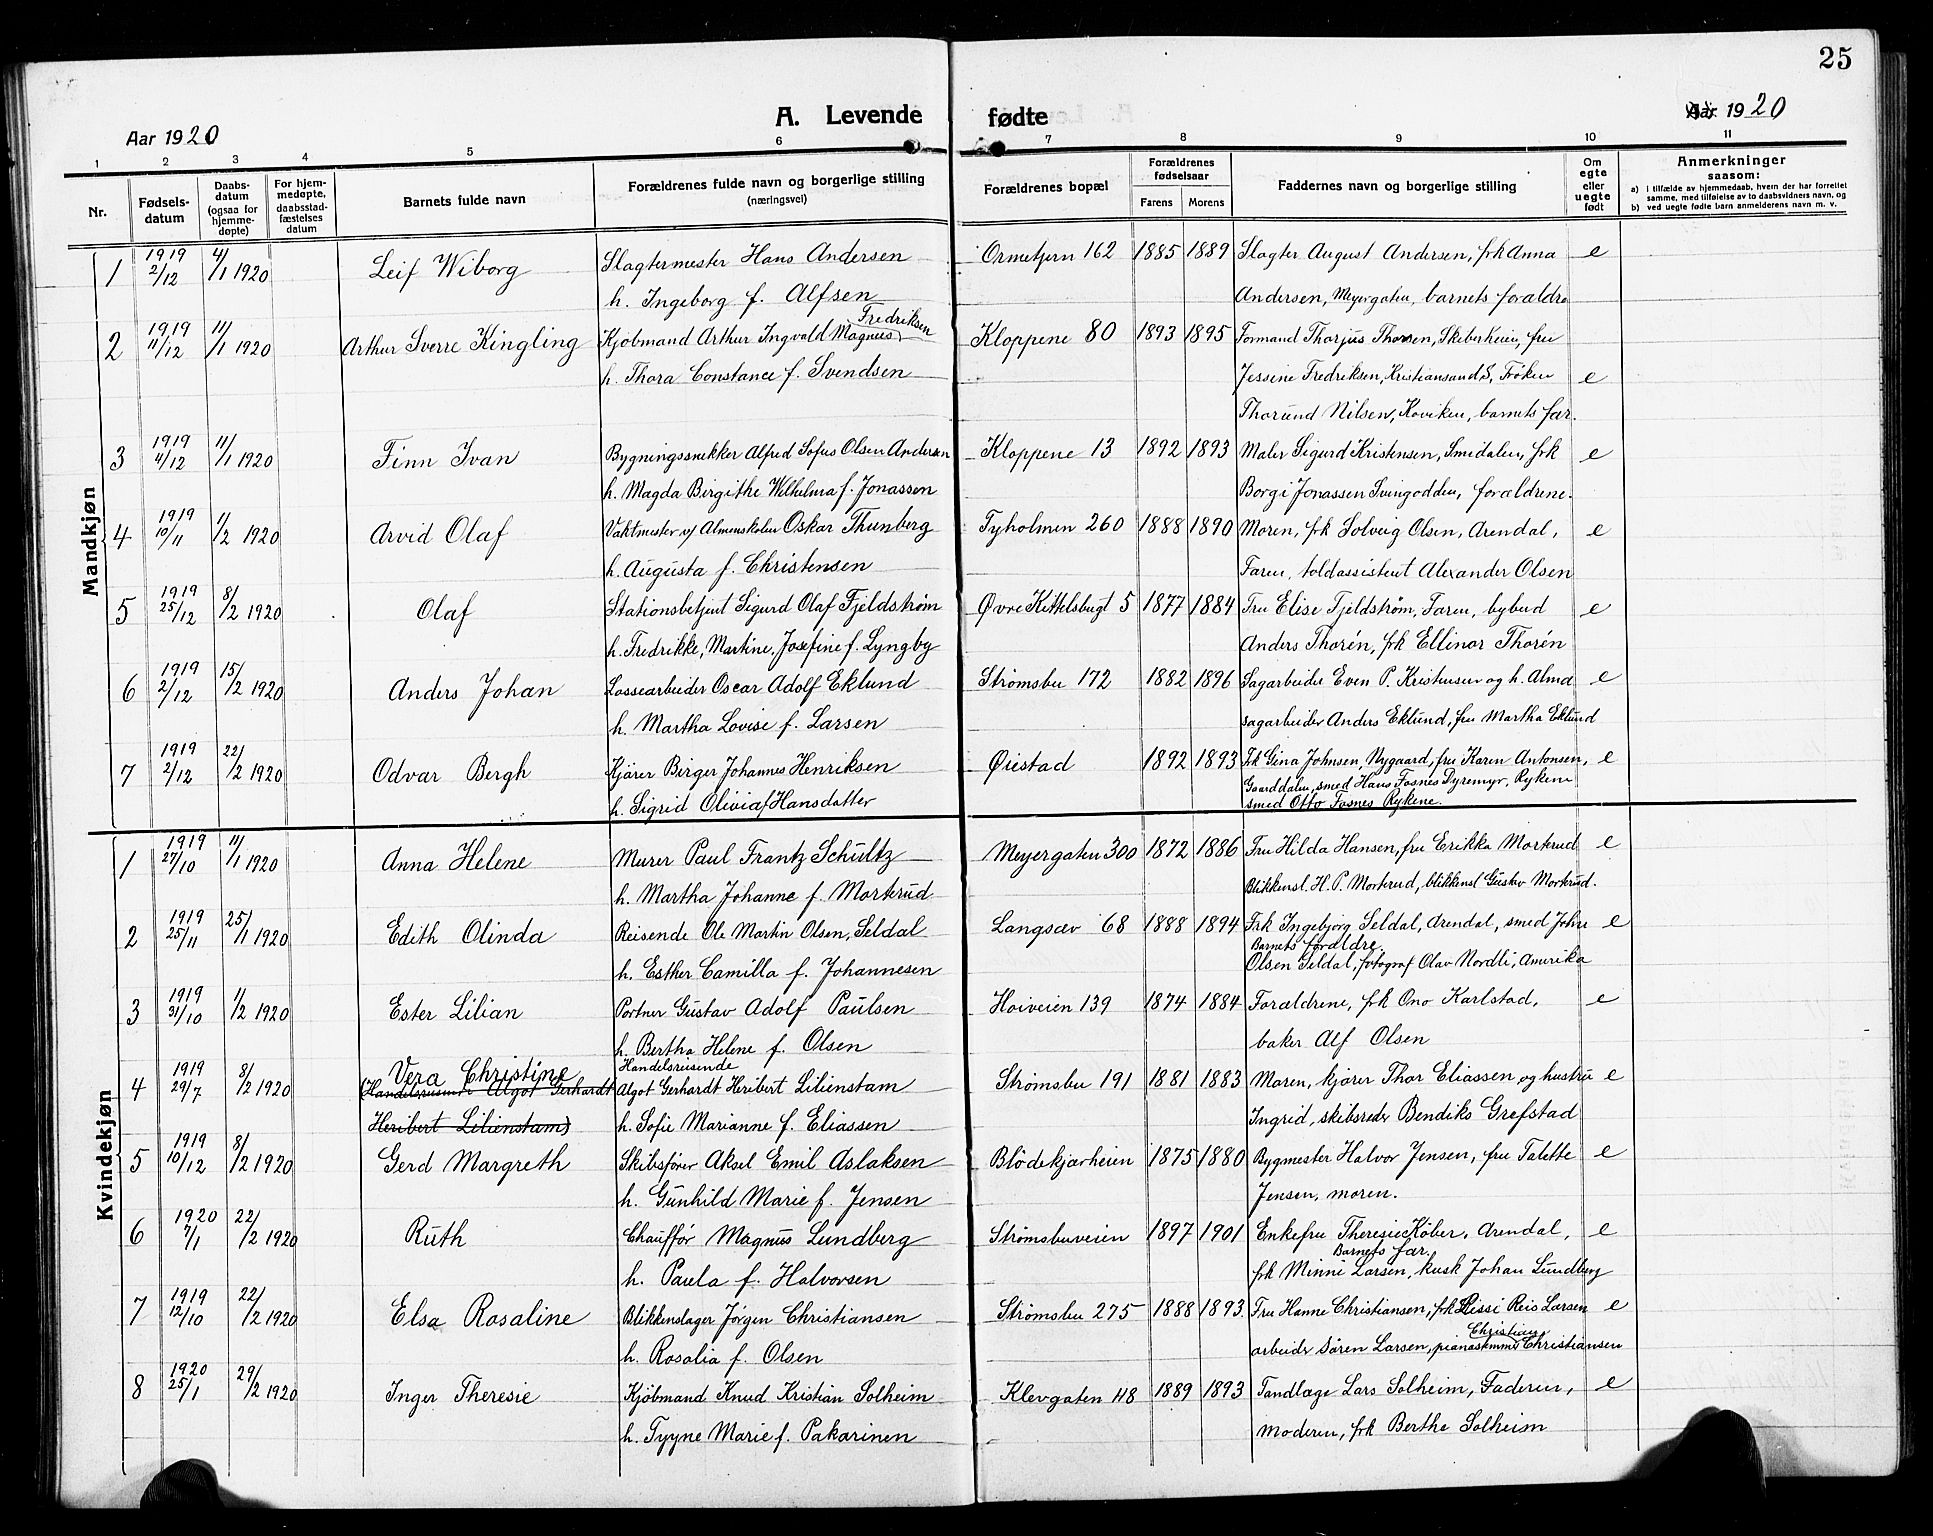 25
A. Levende fødte
Aar 1920
Aar 1920
1 2 3 4 5 6 7 8 9 10 11
Nr.
Fødsels-
datum
Daabs-
datum
(ogsaa for
hjemme-
døpte)
For hjem-
medøpte,
daabsstad-
fæstelses
datum
Barnets fulde navn
Forældrenes fulde navn og borgerlige stilling
(næringsvei)
Forældrenes bopæl
Forældrenes
fødselsaar
Farens. Morens.
Faddernes navn og borgerlige stilling
Om
egte
eller
uegte
født
Anmerkninger
saasom:
a) i tilfælde av hjemmedaab, hvem der har forrettet
samme, med tilføielse av to daabsvidners navn, og
b) ved uegte fødte barn anmelderens navn m. v.
Mandkjøn
1 1919 2/12 4/1 1920 Leif Wiborg Slagtermester Hans Andersen Ormetjern 162 1885 1889 Slagter August Andersen, frk Anna e
h. Ingeborg f. Alfsen Andersen, Meyergaten, barnets forældre
Fredriksen
2 1919 11/12 11/1 1920 Arthur Sverre Kingling Kjøbmand Arthur Ingvald Magnus Kloppene 80 1893 1895 Formand Thorjus Thorsen, Skiberheien, fru
h. Thora Constance f. Svendsen Jessine Fredriksen, Kristiansand S, Frøken e
Thorund Nilsen, Koviken, barnets far.
3 1919 4/12 11/1 1920 Finn Ivan Bygningssnekker Alfred Sofus Olsen Andersen Kloppene 13 1892 1893 Maler Sigurd Kristensen, Smidalen, frk e
h. Magda Birgithe Wilhelma f. Jonassen Borgi Jonassen Svingodden, forældrene.
4 1919 10/11 1/2 1920 Arvid Olaf Vaktmester v/ Almenskolen Oskar Thunberg Tyholmen 260 1888 1890 Moren, frk Solveig Olsen, Arendal, e
h. Augusta f. Christensen Faren, toldassistent Alexander Olsen
5 1919 25/12 8/2 1920 Olaf Stationsbetjent Sigurd Olaf Fjeldstrøm Øvre Kittelsbugt 5 1877 1884 Fru Elise Fjeldstrøm, Faren, bybud e
h. Fredrikke, Martine, Josefine f. Lyngby Anders Thorén, frk Ellinor Thorén
6 1919 2/12 15/2 1920 Anders Johan Lossearbeider Oscar Adolf Eklund Strømsbu 172 1882 1896 Sagarbeider Even P. Kristensen og h. Alma e
h. Martha Lovise f. Larsen sagarbeider Anders Eklund, fru Martha Eklund
7 1919 2/12 22/2 1920 Odvar Bergh Kjører Birger Johannes Henriksen Øiestad 1892 1893 Frk Gina Johnsen, Nygaard, fru Karen Antonsen, e
h. Sigrid Olivia f Hansdatter Gaarddalen, smed Hans Fosnes Dyremyr, Rykene
smed Otto Fosnes Rykene.
Kvindekjøn
1 1919 27/10 11/1 1920 Anna Helene Murer Paul Frantz Schultz Meyergaten 300 1872 1886 Fru Hilda Hansen, fru Erikka Morterud e
h. Martha Johanne f. Morterud Blikkensl. H. P. Morterud, blikkensl Gustav Morterud.
2 1919 25/11 25/1 1920 Edith Olinda Reisende Ole Martin Olsen, Seldal Langsæv 68 1888 1894 Frk Ingebjørg Seldal, Arendal, smed John e
Barnets forældre.
h. Esther Camilla f. Johannesen Olsen Seldal, fotograf Olav Nordli, Amerika
3 1919 31/10 1/2 1920 Ester Lilian Portner Gustav Adolf Paulsen Hoiveien 139 1874 1884 Forældrene, frk Ono Karlstad, e
h. Bertha Helene f. Olsen baker Alf Olsen
Vera Christine Handelsreisende
4 1919 29/7 8/2 1920 (Handelsreisende Algot Gerhardt Algot Gerhardt Heribert Lilienstam Strømsbu 191 1881 1883 Moren, kjører Thor Eliassen og hustru e
Heribert Lilienstam) h. Sofie Marianne f. Eliassen Ingrid, skibsreder Bendiks Grefstad
5 1919 10/12 8/2 1920 Gerd Margreth Skibsfører Aksel Emil Aslaksen Blödekjærheien 1875 1880 Bygmester Halvor Jensen, fru Talette e
h. Gunhild Marie f. Jensen Jensen, moren.
6 1920 7/1 22/2 1920 Ruth Chauffør Magnus Lundberg Strømsbuveien 1897 1901 Enkefru Theresie Køber, Arendal, e
Barnets far.
h. Paula f. Halvorsen frk Minni Larsen, kusk Johan Lundberg
7 1919 12/10 22/2 1920 Elsa Rosaline Blikkenslager Jørgen Christiansen Strømsbu 275 1888 1893. Fru Hanne Christiansen, frk Sissi Reis Larsen e
Christian
h. Rosalia f. Olsen arbeider Søren Larsen, pianostemmer Christiansen
8 1920 25/1 29/2 1920 Inger Theresie Kjøbmand Knud Kristian Solheim Klevgaten 48 1889 1893 Tandlæge Lars Solheim, Faderen, e
h. Tyyne Marie f. Pakarinen Moderen, frk Berthe Solheim